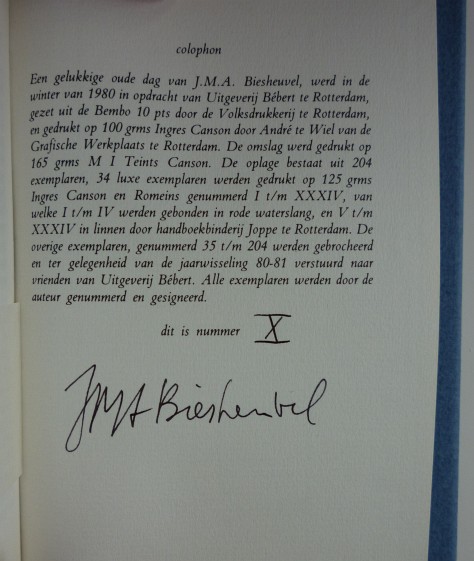 colophon
Een gelukkige oude dag van J.M.A. Biesheuvel, werd in de
winter van 1980 in opdracht van Uitgeverij Bébert te Rotterdam,
gezet uit de Bembo 10 pts door de Volksdrukkerij te Rotterdam,
en gedrukt op 100 grms Ingres Canson door André te Wiel van de
Grafische Werkplaats te Rotterdam. De omslag werd gedrukt op
165 grms M I Teints Canson. De oplage bestaat uit 204
exemplaren, 34 luxe exemplaren werden gedrukt op 125 grms
Ingres Canson en Romeins genummerd I t/m XXXIV, van
welke I t/m IV werden gebonden in rode waterslang, en V t/m
XXXIV in linnen door handboekbinderij Joppe te Rotterdam. De
overige exemplaren, genummerd 35 t/m 204 werden gebrocheerd
en ter gelegenheid van de jaarwisseling 80-81 verstuurd naar
vrienden van Uitgeverij Bébert. Alle exemplaren werden door de
auteur genummerd en gesigneerd.
dit is nummer X
JMA Biesheuvel